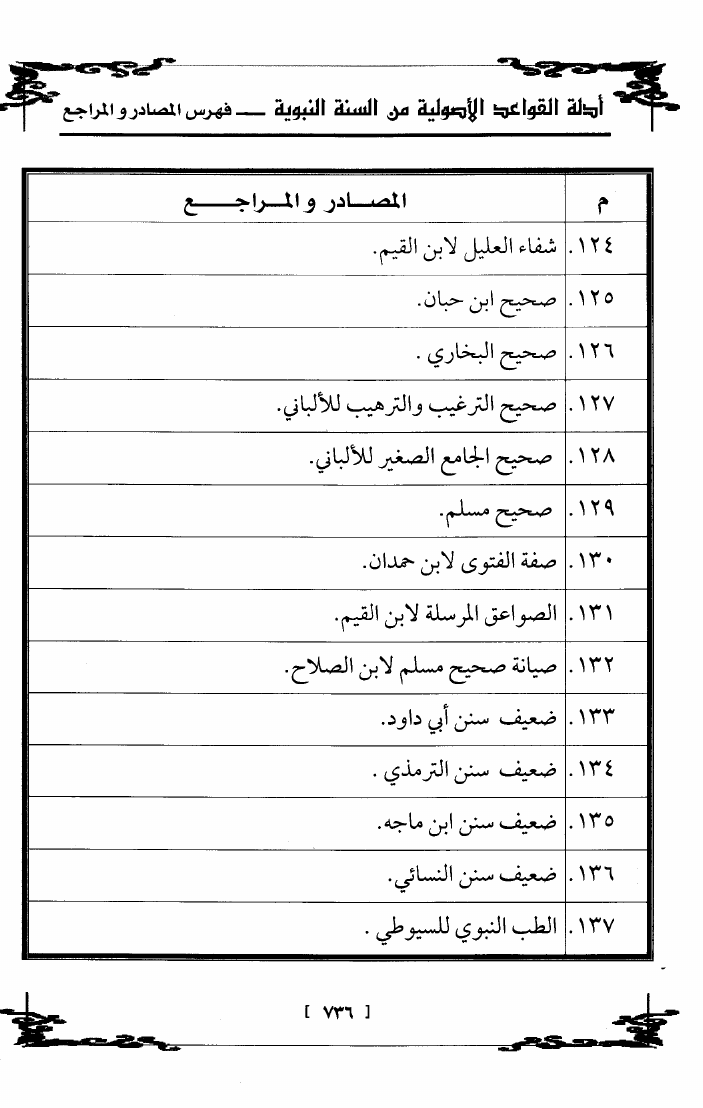 أدلة القواعد الأصولية من السنة النبوية ـــ فهرس المصادر و المراجع
م المصــادر و المــراجــــع
١٢٤. شفاء العليل لابن القيم.
١٢٥. صحيح ابن حبان.
١٢٦. صحيح البخاري .
١٢٧. صحيح الترغيب والترهيب للألباني.
١٢٨. صحيح الجامع الصغير للألباني.
١٢٩. صحيح مسلم.
١٣٠. صفة الفتوى لابن حمدان.
١٣١. الصواعق المرسلة لابن القيم.
١٣٢. صيانة صحيح مسلم لابن الصلاح.
١٣٣. ضعيف سنن أبي داود.
١٣٤. ضعيف سنن الترمذي .
١٣٥. ضعيف سنن ابن ماجه.
١٣٦. ضعيف سنن النسائي.
١٣٧. الطب النبوي للسيوطي .
[ ٧٣٦ ]